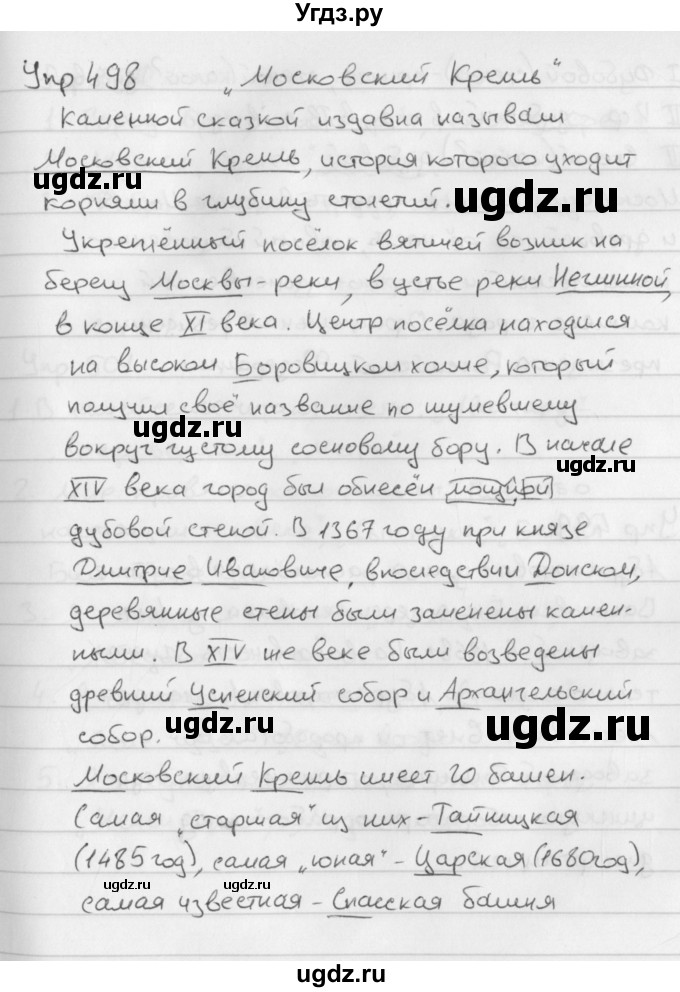 Угдз.ру
Упр 498 „Московский Кремль"
Каменной сказкой издавна называли
Московский Кремль, история которого уходит
корнями в глубину столетий.
ugdz.ru
Укреплённый посёлок вятичей возник на
берегу Москвы-реки, в устье реки Неглинной,
в конце XI века. Центр посёлка находился
на высоком Боровицком холме, который
получил своё название по шумевшему
ugdz.ru
вокруг густому сосновому бору. В начале
XIV века город был обнесён мощной
дубовой стеной. В 1367 году при князе
Дмитрие Ивановиче, впоследствии Донском,
деревянные стены были заменены камен-
ными. В XIV же веке были возведены
древний Успенский собор и Архангельский
собор.
ugdz.ru
ugdz.ru
Московский Кремль имеет 20 башен.
Самая „старшая" из них - Тайницкая
(1485 год), самая „юная" - Царская (1680 год),
ugdz.ru
ugdz.ru
самая известная - Спасская башня
ugdz.ru